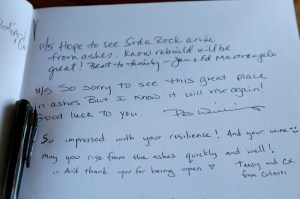 11/5 Hope to see Soda Rock arise
from ashes. Know rebuild will be
great! Best to family - Jim & Ed
11/5 So sorry to see this great place
in ashes. But I know it will rise again!
Good luck to you.
So impressed with your resilience! And your wine
May you rise from the ashes quickly and well!
... And thank you for being open ♡
from